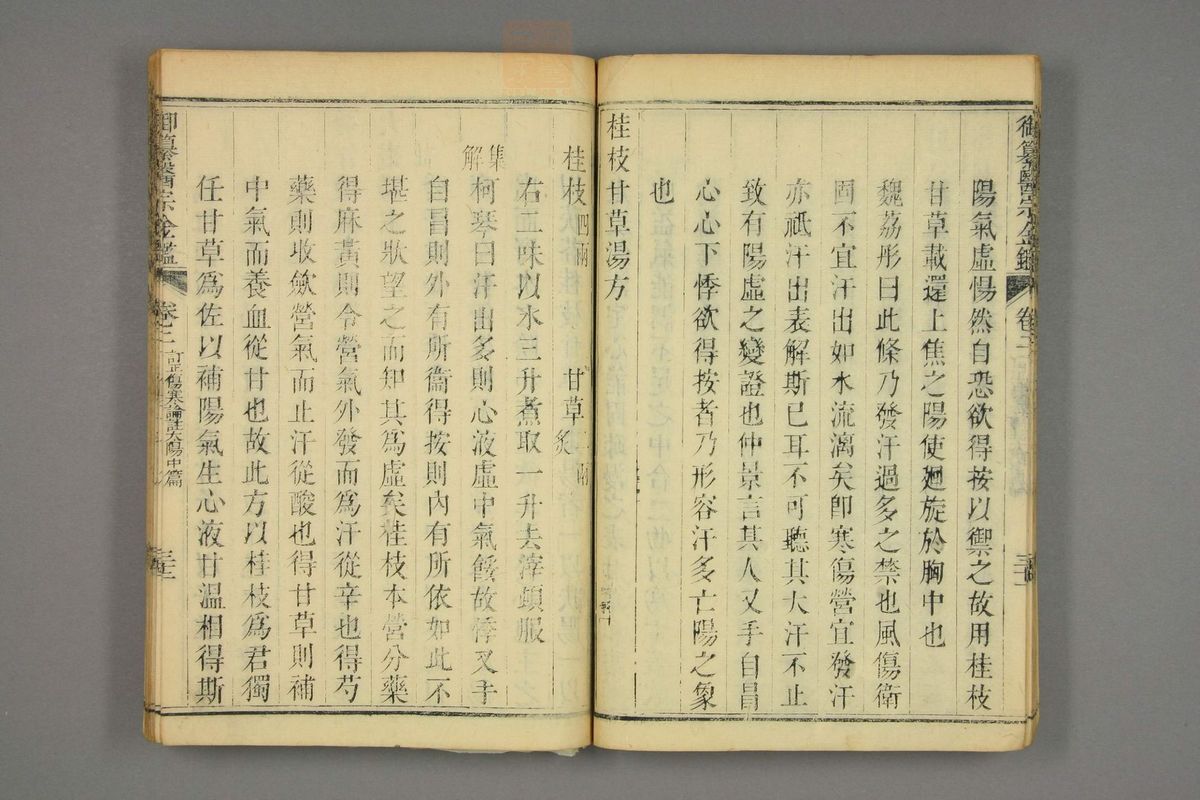 御纂醫宗金鑑 卷二
陽氣虛惕然自恐欲得按以禦之故用桂枝
甘草載還上焦之陽使廻旋於胸中也
魏荔彤曰此條乃發汗過多之禁也風傷衛
固不宜汗出如水流漓矣卽寒傷營宜發汗
亦祇汗出表解斯已耳不可聽其大汗不止
致有陽虛之變證也仲景言其人叉手自冒
心心下悸欲得按者乃形容汗多亡陽之象
也
桂枝甘草湯方
桂枝四兩 甘草炙二兩
右二味以水三升煮取一升去滓頓服
集解 柯琴曰汗出多則心液虛中氣餒故悸叉手
自冒則外有所衞得按則內有所依如此不
堪之狀望之而知其爲虛矣桂枝本營分藥
得麻黃則令營氣外發而爲汗從辛也得芍
藥則收斂營氣而止汗從酸也得甘草則補
中氣而養血從甘也故此方以桂枝爲君獨
任甘草爲佐以補陽氣生心液甘溫相得斯
御纂醫宗金鑑 卷二 訂正傷寒論註太陽中篇